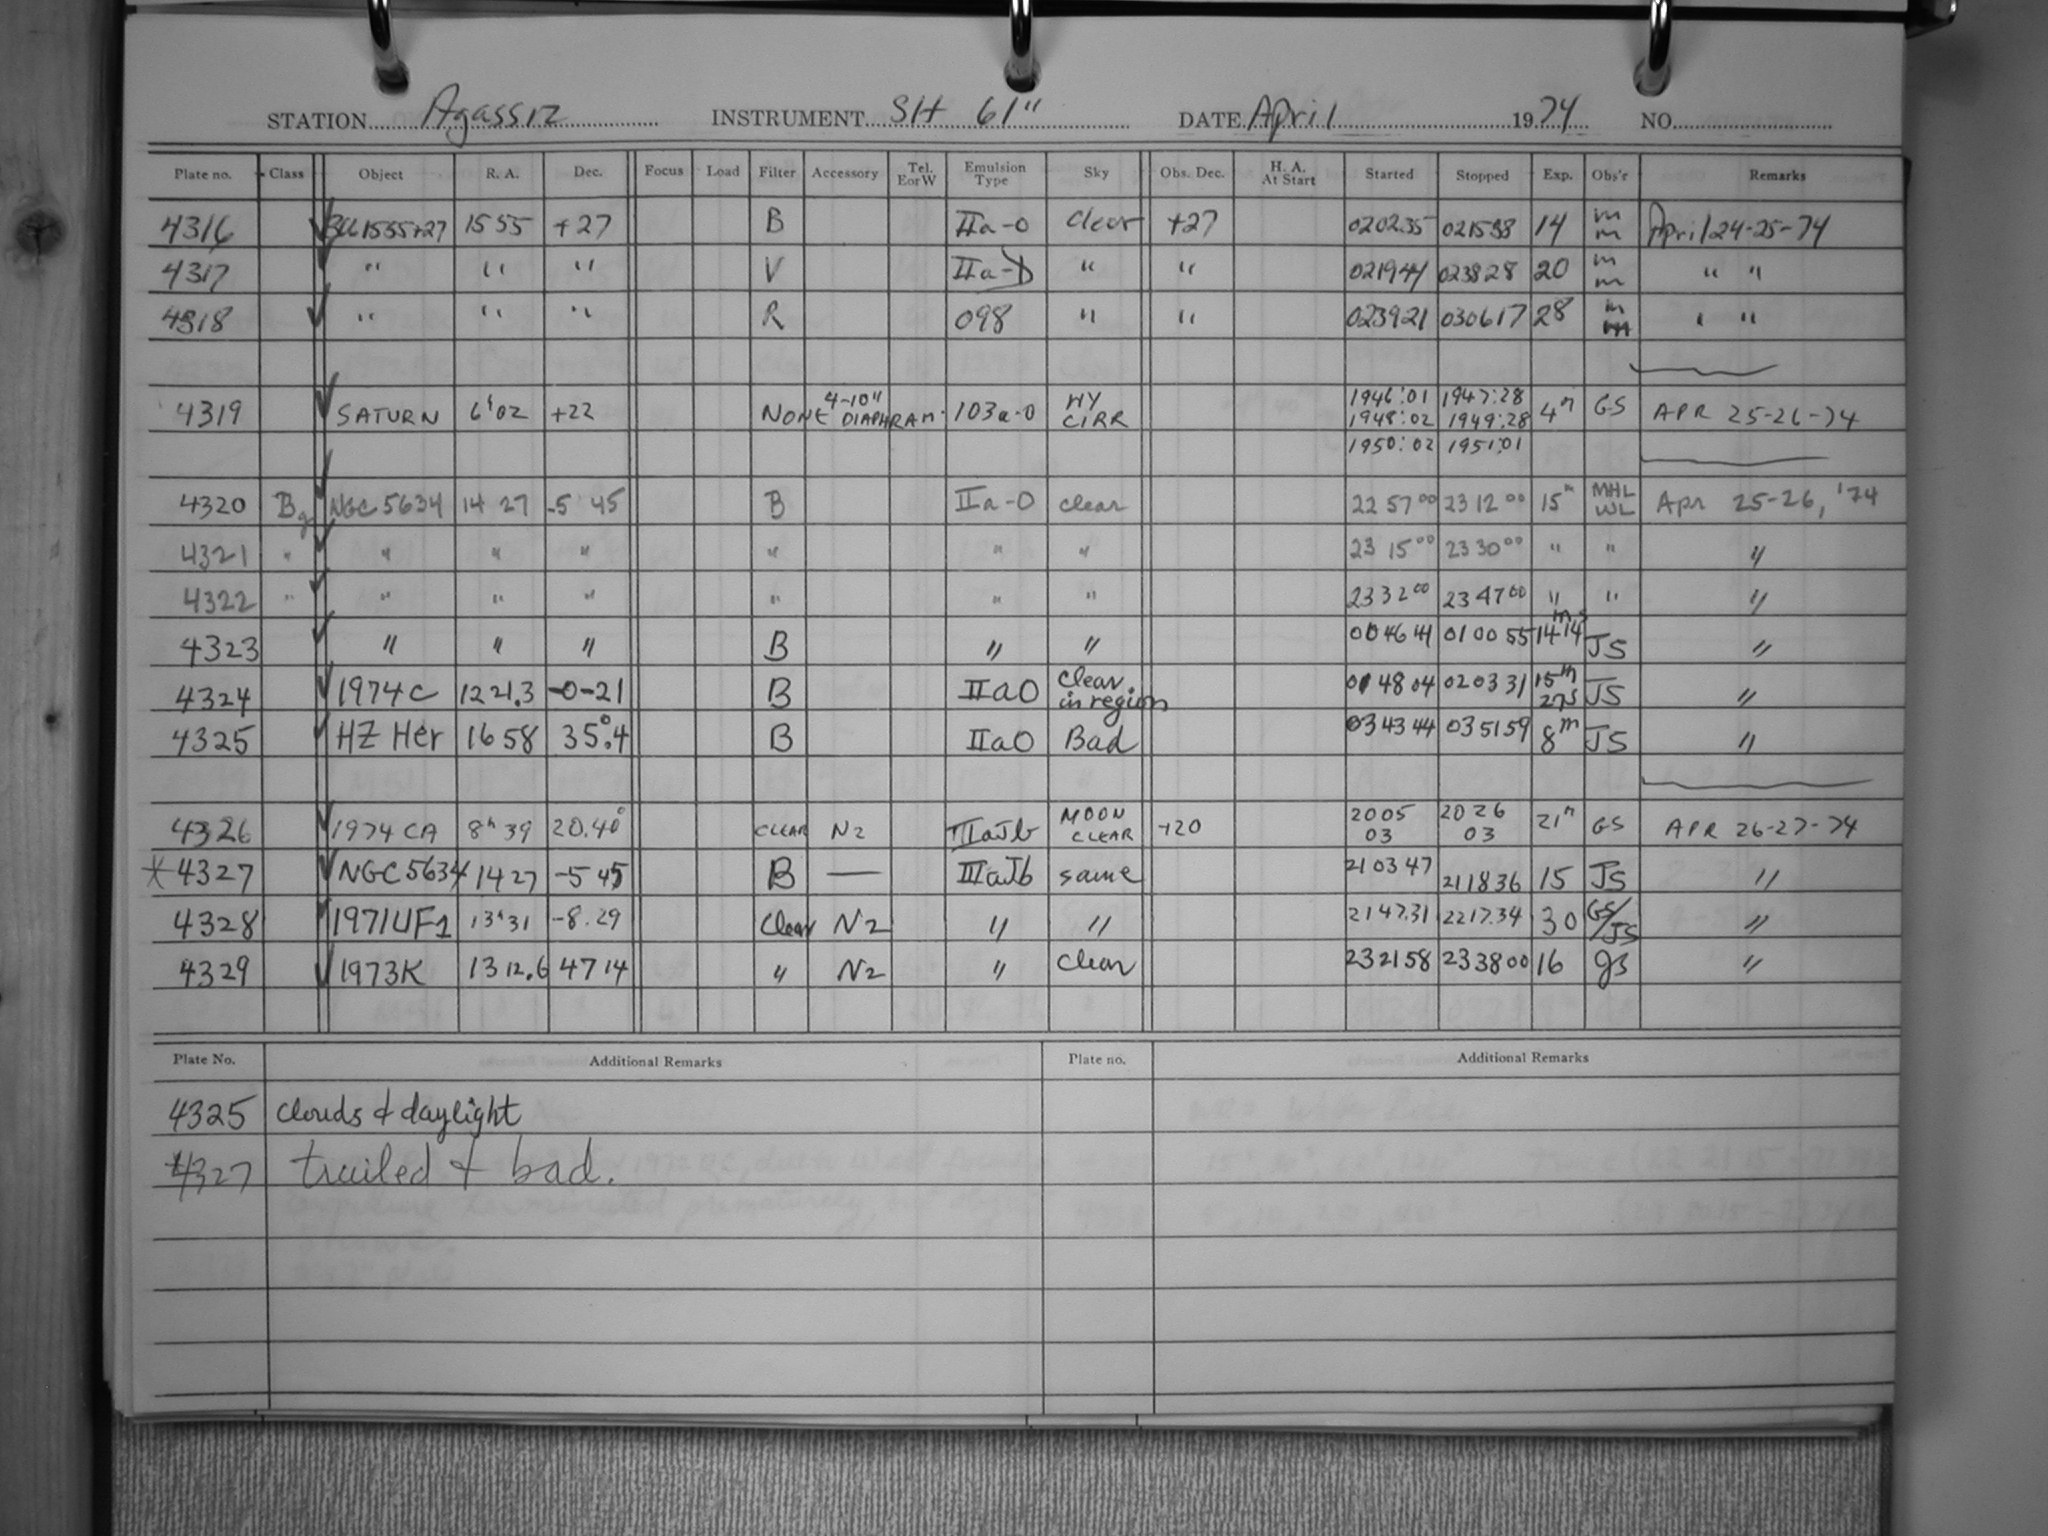 STATION Agassiz INSTRUMENT SH 61" DATE April 1974 NO.
Plate no. Class Object R. A. Dec. Focus Load Filter Accessory Tel. EorW Emulsion Type Sky Obs. Dec. H. A. At Start Started Stopped Exp. Obs'r Remarks
4316 1555+27 15 55 +27 B IIa-O clear +27 020235 14 m m April 24-25-74
4317 " " " V IIa-D " " 021944 023828 20 m m " "
4318 " " " R 098 " " 023921 030617 28 m m " "
4319 SATURN 6h02 +22 NONE 4-10" DIAPHRAM 103a-O HY CIRR 1946:01 1947:28 4m GS APR 25-26-74
1948:02 1949:28
1950:02 1951:01
4320 Bg NGC 5634 14 27 -5 45 B IIa-O clear 22 57 00 23 12 00 15m MHL WL Apr 25-26, '74
4321 " " " " " " " 23 15 00 23 30 00 " " "
4322 " " " " " " " 23 32 00 23 47 00 " " "
4323 " " " B " " 00 46 41 01 00 55 14m 14s JS "
4324 1974c 12 21.3 -0-21 B IIaO Clear in region 01 48 04 02 03 31 15m 27s JS "
4325 HZ Her 16 58 35°.4 B IIaO Bad 03 43 44 03 51 59 8m JS "
4326 1974 CA 8h 39 20.40° CLEAR N2 IIIaJb MOON CLEAR +20 2005 03 2026 03 21m GS APR 26-27-74
* 4327 NGC 5634 14 27 -5 45 B — IIIaJb same 21 03 47 21 18 36 15 JS "
4328 1971UF1 13h31 -8.29 Clear N2 " " 2147.31 2217.34 30 GS/JS "
4329 1973K 13 12.6 47 14 " N2 " Clear 23 21 58 23 38 00 16 gs "
Plate No. Additional Remarks Plate no. Additional Remarks
4325 clouds & daylight
4327 trailed & bad.